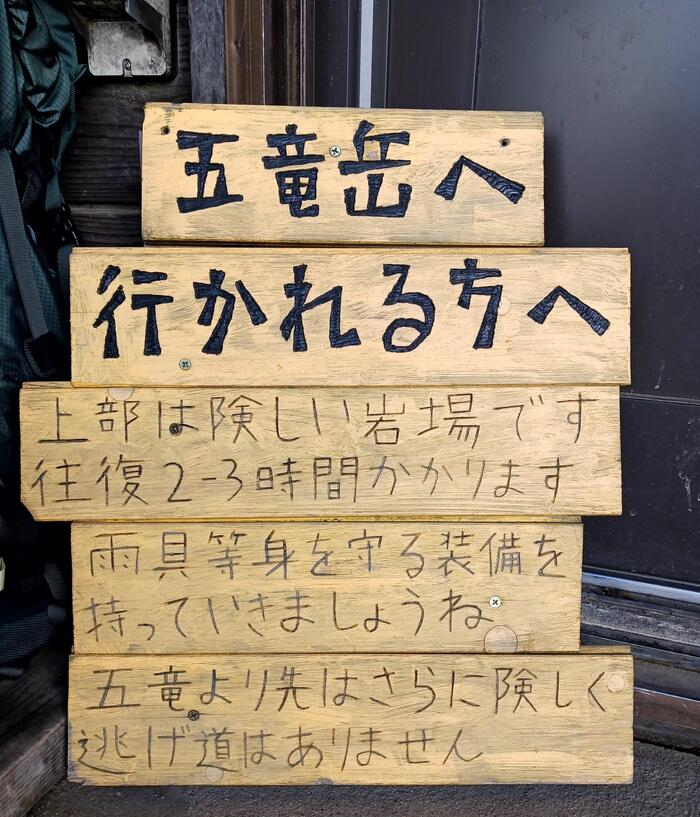 五竜岳へ
行かれる方へ
上部は険しい岩場です
往復2-3時間かかります
雨具等身を守る装備を
持っていきましょうね
五竜より先はさらに険しく
逃げ道はありません